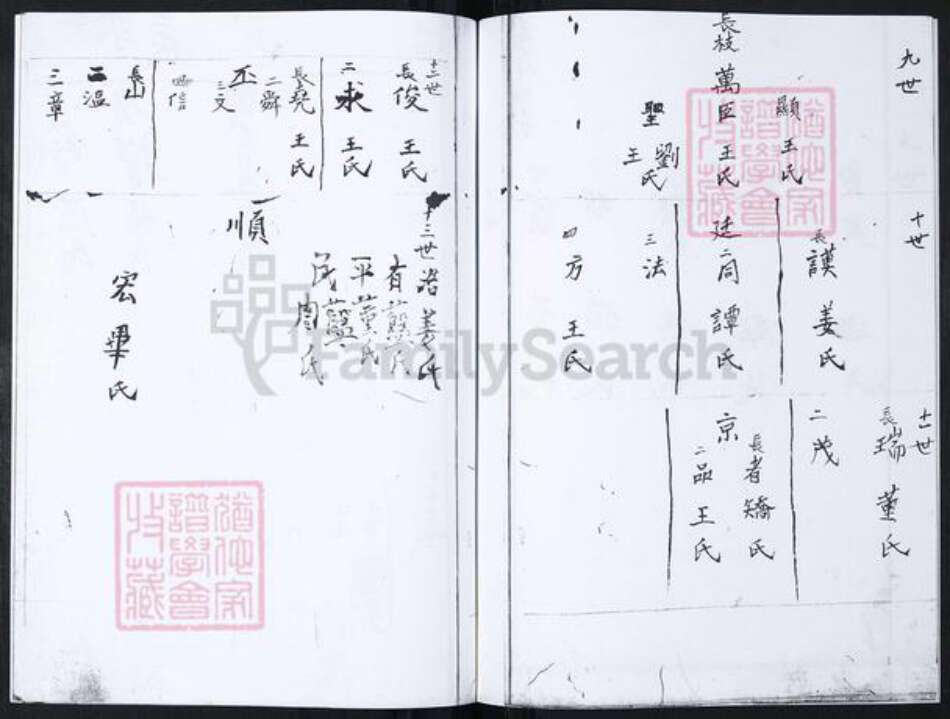 九世
顯 王氏
長枝 萬臣 王氏
聖 劉氏 王氏
十世
長 謨 姜氏
廷 二 同 譚氏
三 法
四 方 王氏
十一世
長 瑞 董氏
二 茂
長 者 矯氏
京
二 品 王氏
十二世
長 俊 王氏
二 永 王氏
長 堯 王氏
二 舜
丕
三 文
四 信
長 山
二 溫
三 章
十三世
治 姜氏
有
平 董氏
民
周氏
順
宏 畢氏
FamilySearch